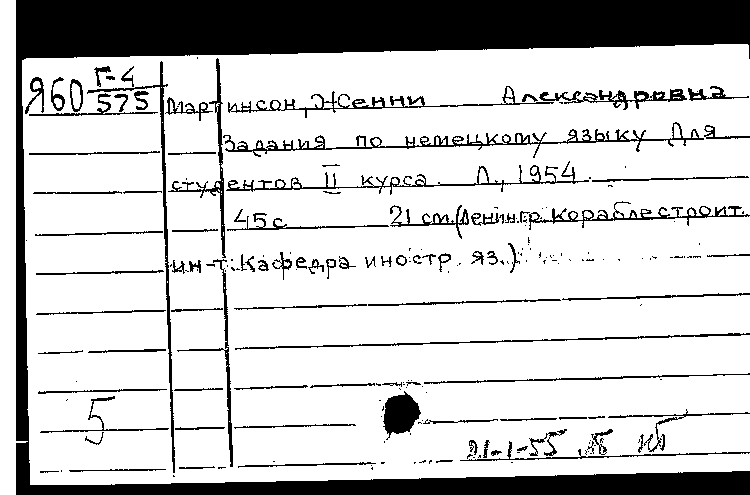 Я60 Г-4
575
Мартинсон, Женни Александровна
Задания по немецкому языку Для
студентов II курса. Л., 1954.
45с 21 см. (Ленингр. Кораблестроит.
ин-т. Кафедра иностр. яз.)
5
21-1-55